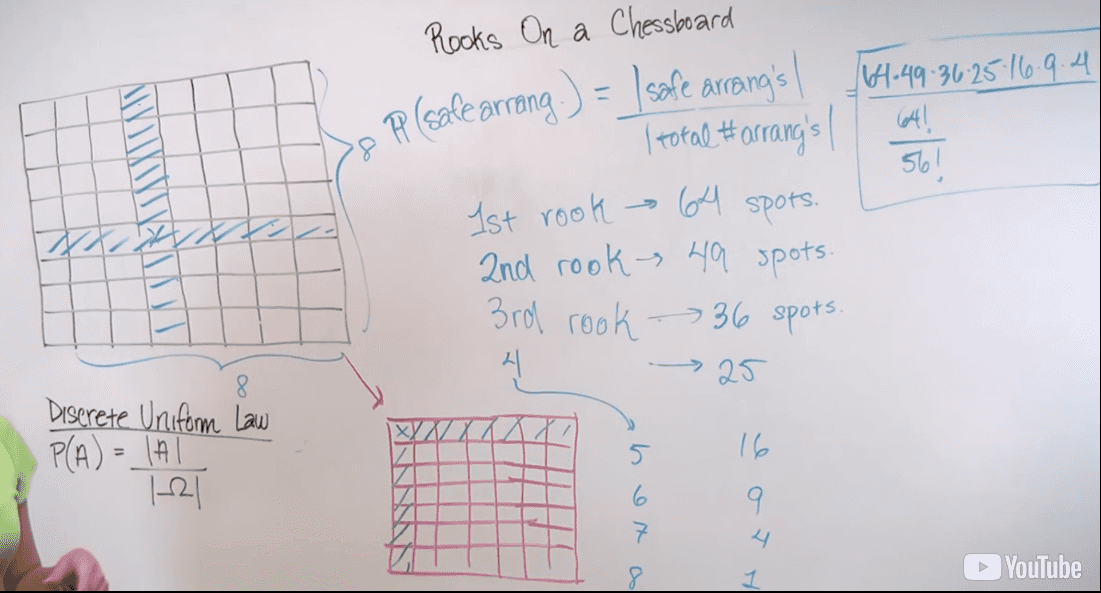 Rooks On a Chessboard
8
8
ℙ(safe arrang.) = |safe arrang's| / |total # arrang's| = 64·49·36·25·16·9·4 / (64! / 56!)
1st rook → 64 spots.
2nd rook → 49 spots.
3rd rook → 36 spots.
4 → 25
5 16
6 9
7 4
8 1
Discrete Uniform Law
P(A) = |A| / |Ω|
YouTube